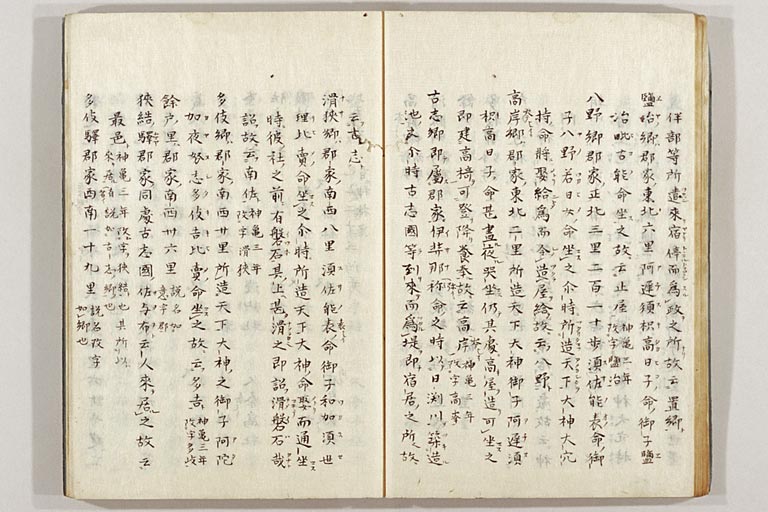 伴部等所遣來宿停而為政之所故云置郷
鹽冶郷郡家東北六里阿遅須枳高日子命御子鹽
冶毗古能命坐之故云止屋 神亀三年改字鹽冶
八野郷郡家正北三里二百一十歩須佐能袁命御
子八野若日女命坐之尒時所造天下大神大穴
持命將娶給為而令造屋給故云八野
高岸郷郡家東北二里所造天下大神御子阿遅須
枳高日子命甚晝夜哭坐仍其處高屋造可坐之
即建高椅可登降養奉故云高岸 神亀三年改字高峯
古志郷即属郡家伊弉那弥命之時以日渕川築造
池之尒時古志國等到來而為堤即宿居之所故
云古志
滑狹郷郡家南西八里須佐能袁命御子和加須世
理比賣命坐之尒時所造天下大神命娶而通坐
時彼社之前有磐石其上甚滑之即詔滑磐石哉
詔故云南佐 神亀三年改字滑狹
多伎郷郡家南西廿里所造天下大神之御子阿陀
加夜努志多伎吉比賣命坐之故云多吉 神亀三年改字多岐
餘戸里郡家南西卅六里 説名如意宇郡
狹結驛郡家同處古志國佐与布云人來居之故云
最邑 神亀三年改字狹結也其所以來居者説如古志郷也
多伎驛郡家西南一十九里 説名改字如郷也